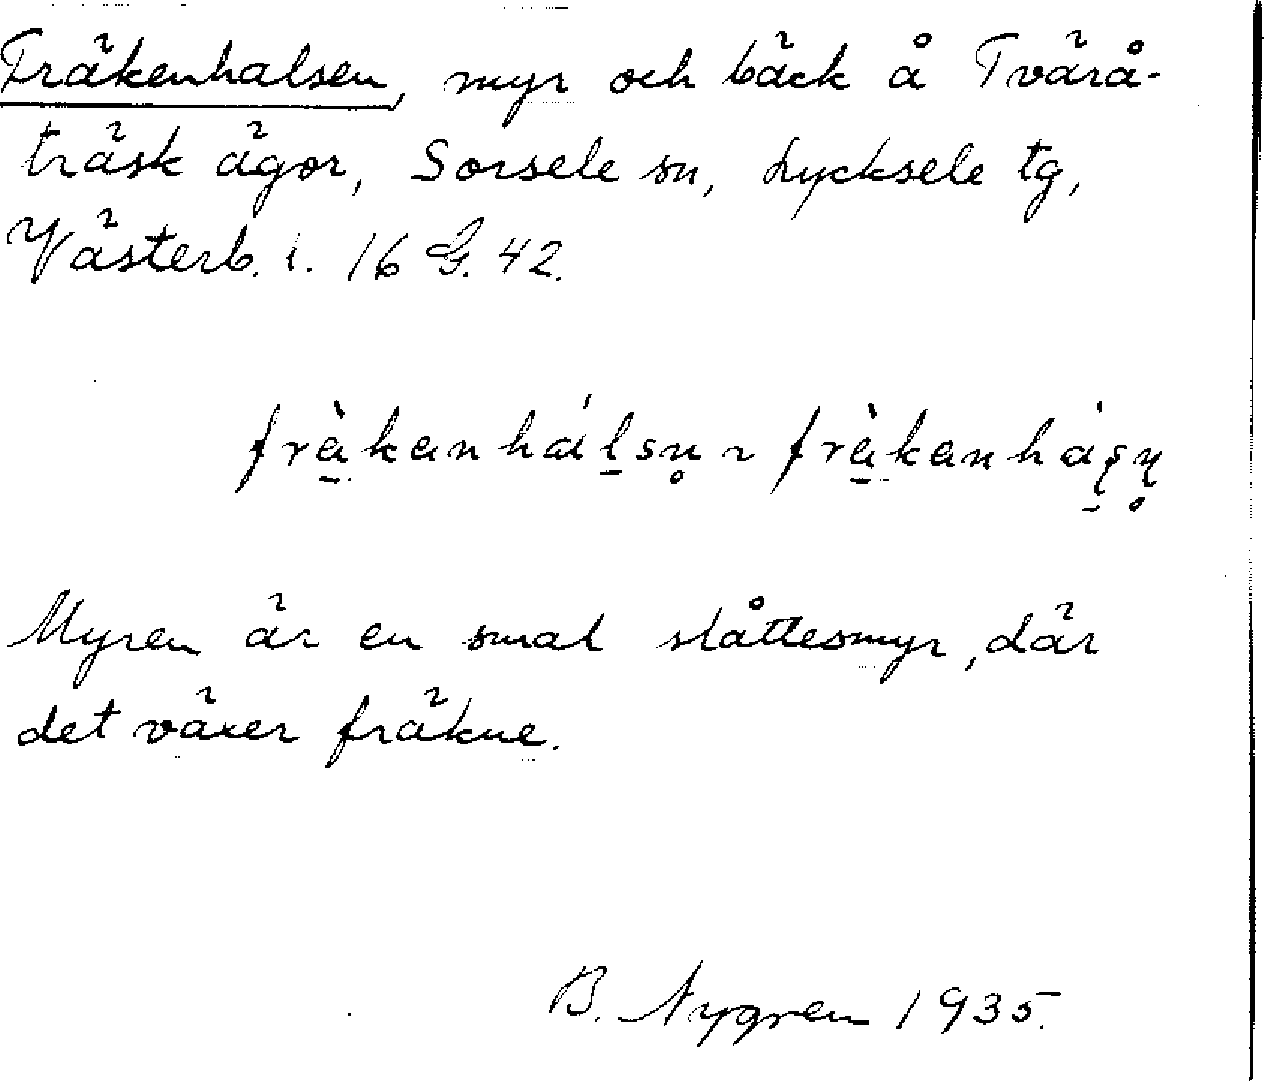 Fräkenhalsen, myr och bäck å Tvärå-
träsk ägor, Sorsele sn, Lycksele tg,
Västerb. l. 16 G. 42.
fràkanhálsn̥ ~ fràkanháʂɳ̥
Myren är en smal slåttesmyr, där
det växer fräkne.
B. Nygren 1935.